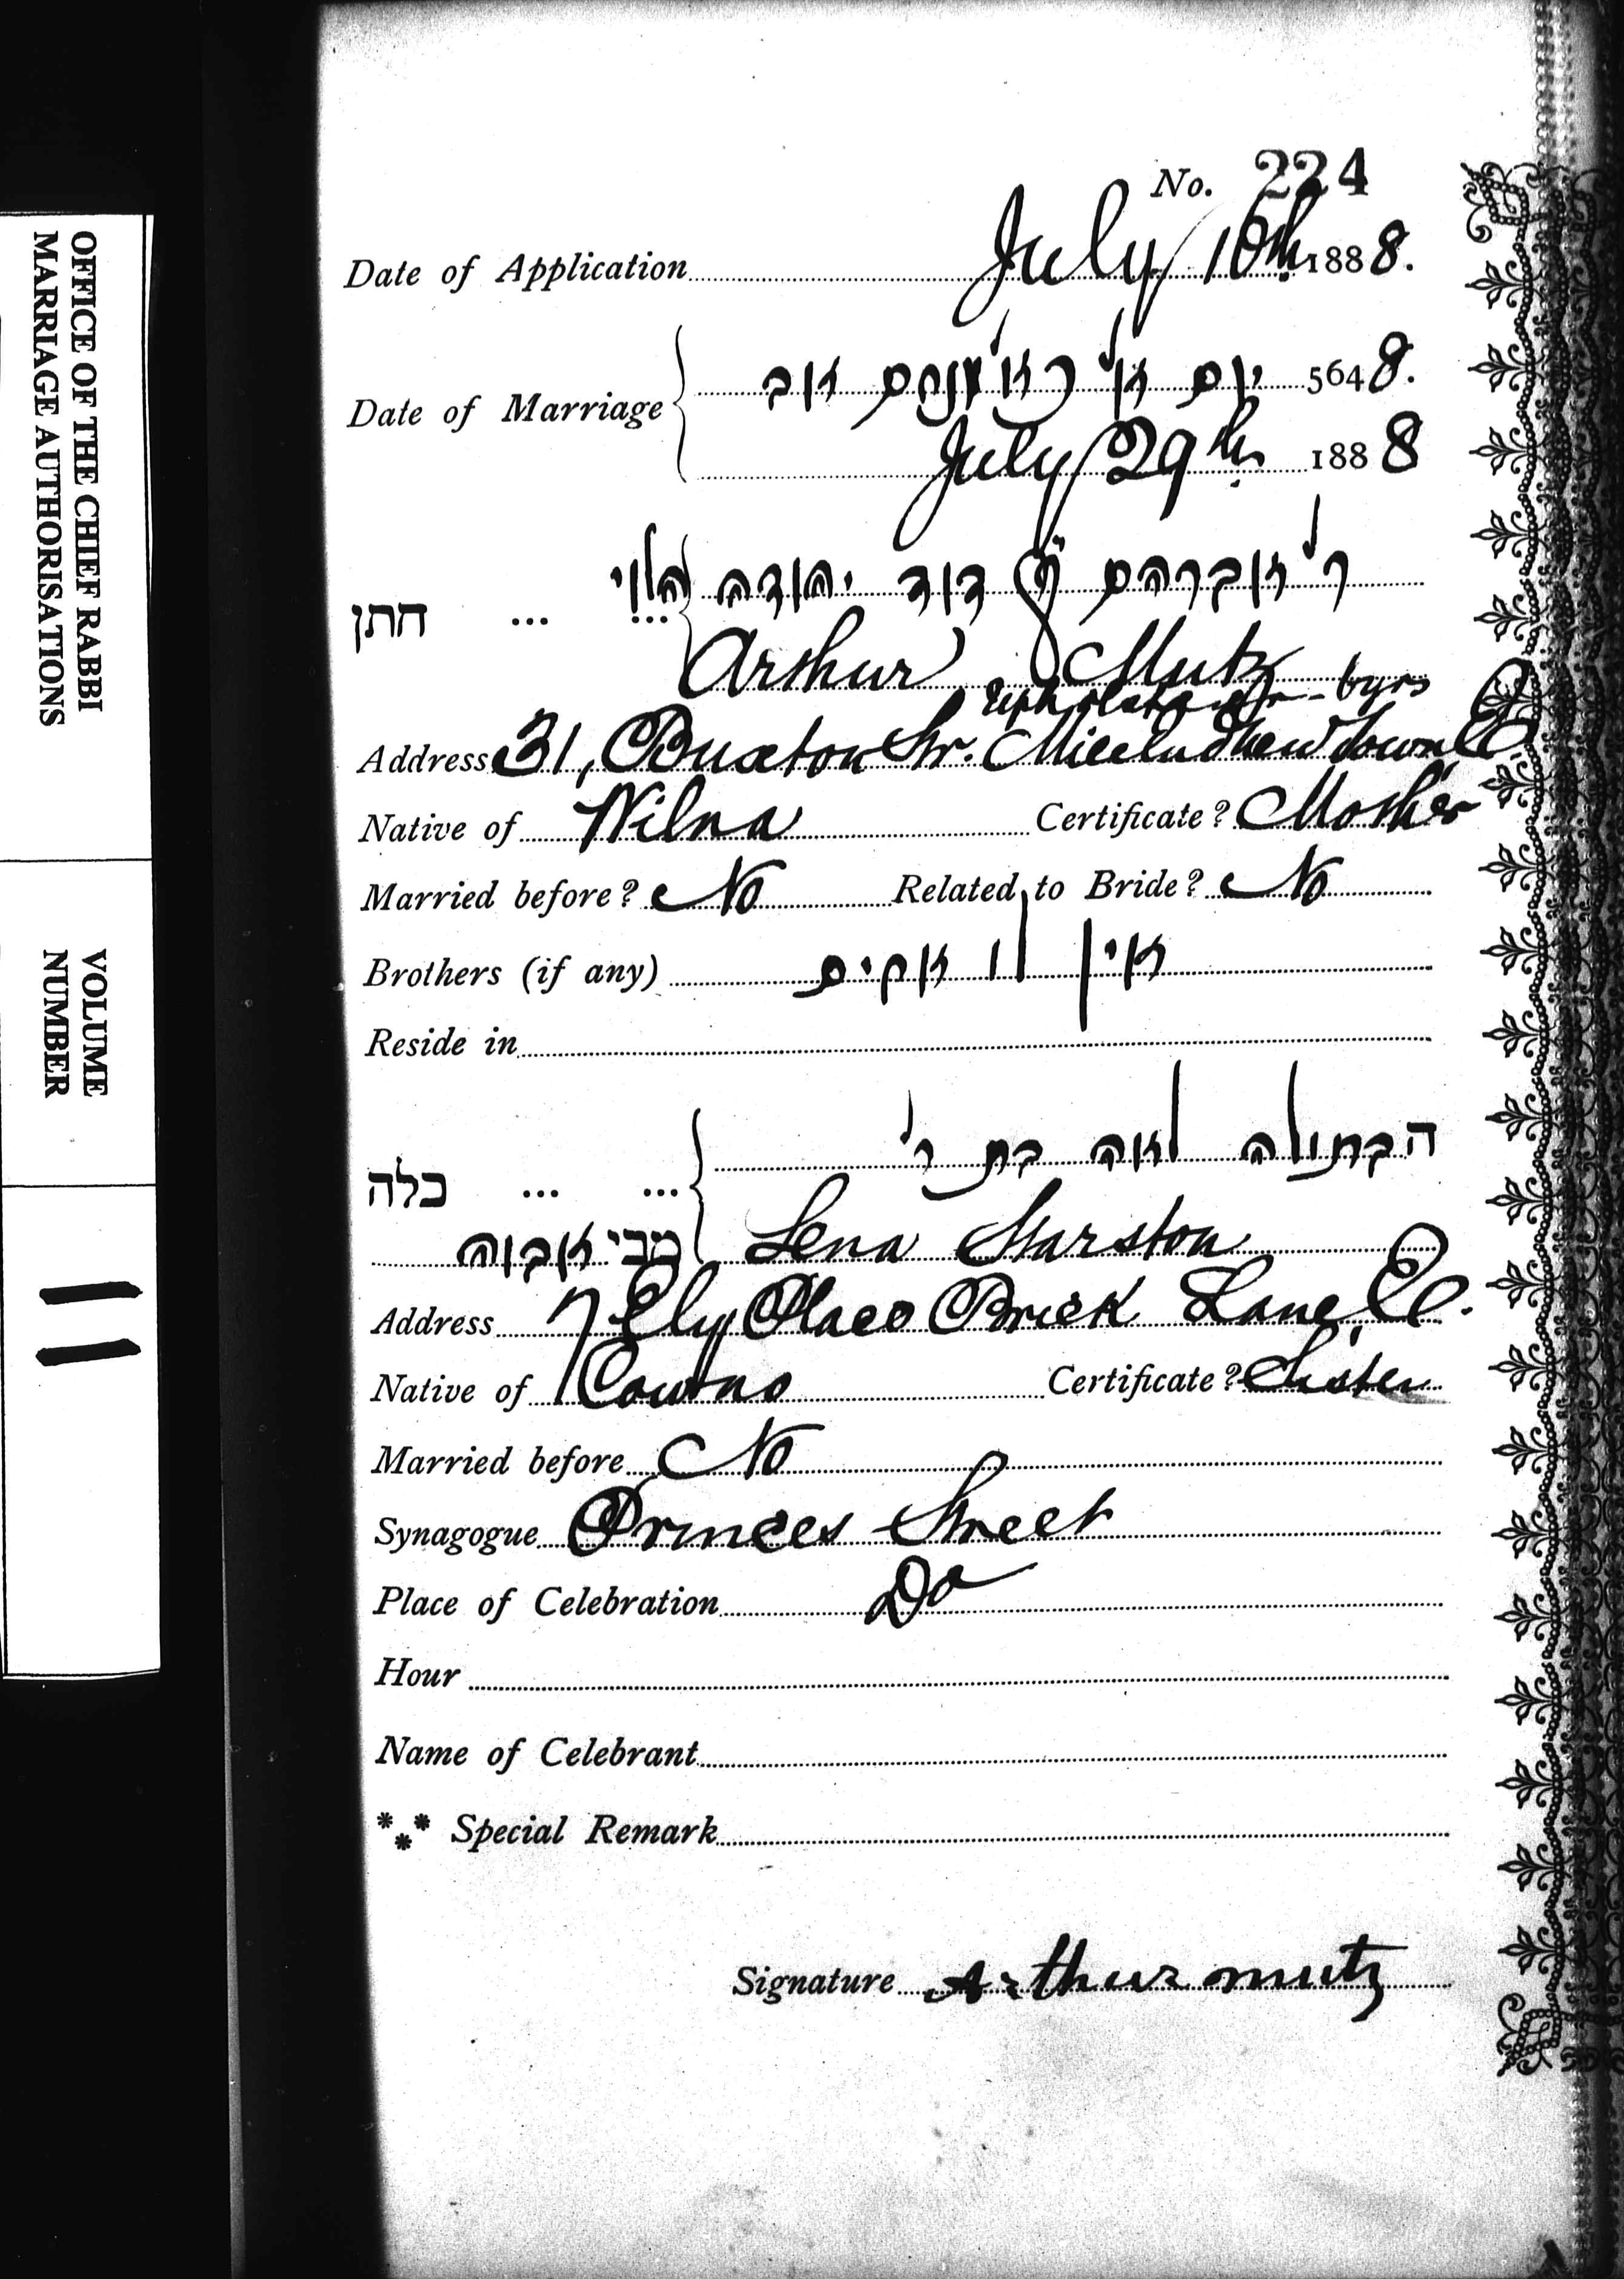 OFFICE OF THE CHIEF RABBI
MARRIAGE AUTHORISATIONS
VOLUME
NUMBER
11
No. 224
Date of Application July 10th 1888.
Date of Marriage יום א' כ"א מנחם אב 5648.
July 29th 1888
חתן ... ... ר' אברהם דוד יהודה הלוי
Arthur Mutz
Upholsterer - 6yrs
Address 31, Buxton Str. Mile End New Town E
Native of Wilna Certificate? Mother
Married before? No Related to Bride? No
Brothers (if any) אין לו אחים
Reside in
הבתולה לאה בת ר'
כלה ... ...
מבי אבוה Lena Marston
Address 7 Ely Place Brick Lane, E.
Native of Cowno Certificate? Sister
Married before No
Synagogue Princes Street
Place of Celebration Do
Hour
Name of Celebrant
*** Special Remark
Signature Arthur mutz